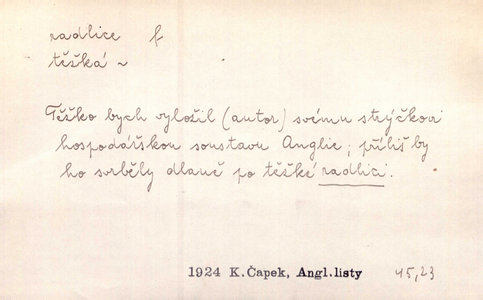 radlice f
těžká ~
Těžko bych vyložil (autor) svému strýčkovi
hospodářskou soustavu Anglie; příliš by
ho svrběly dlaně po těžké radlici.
1924 K.Čapek, Angl.listy 45,23